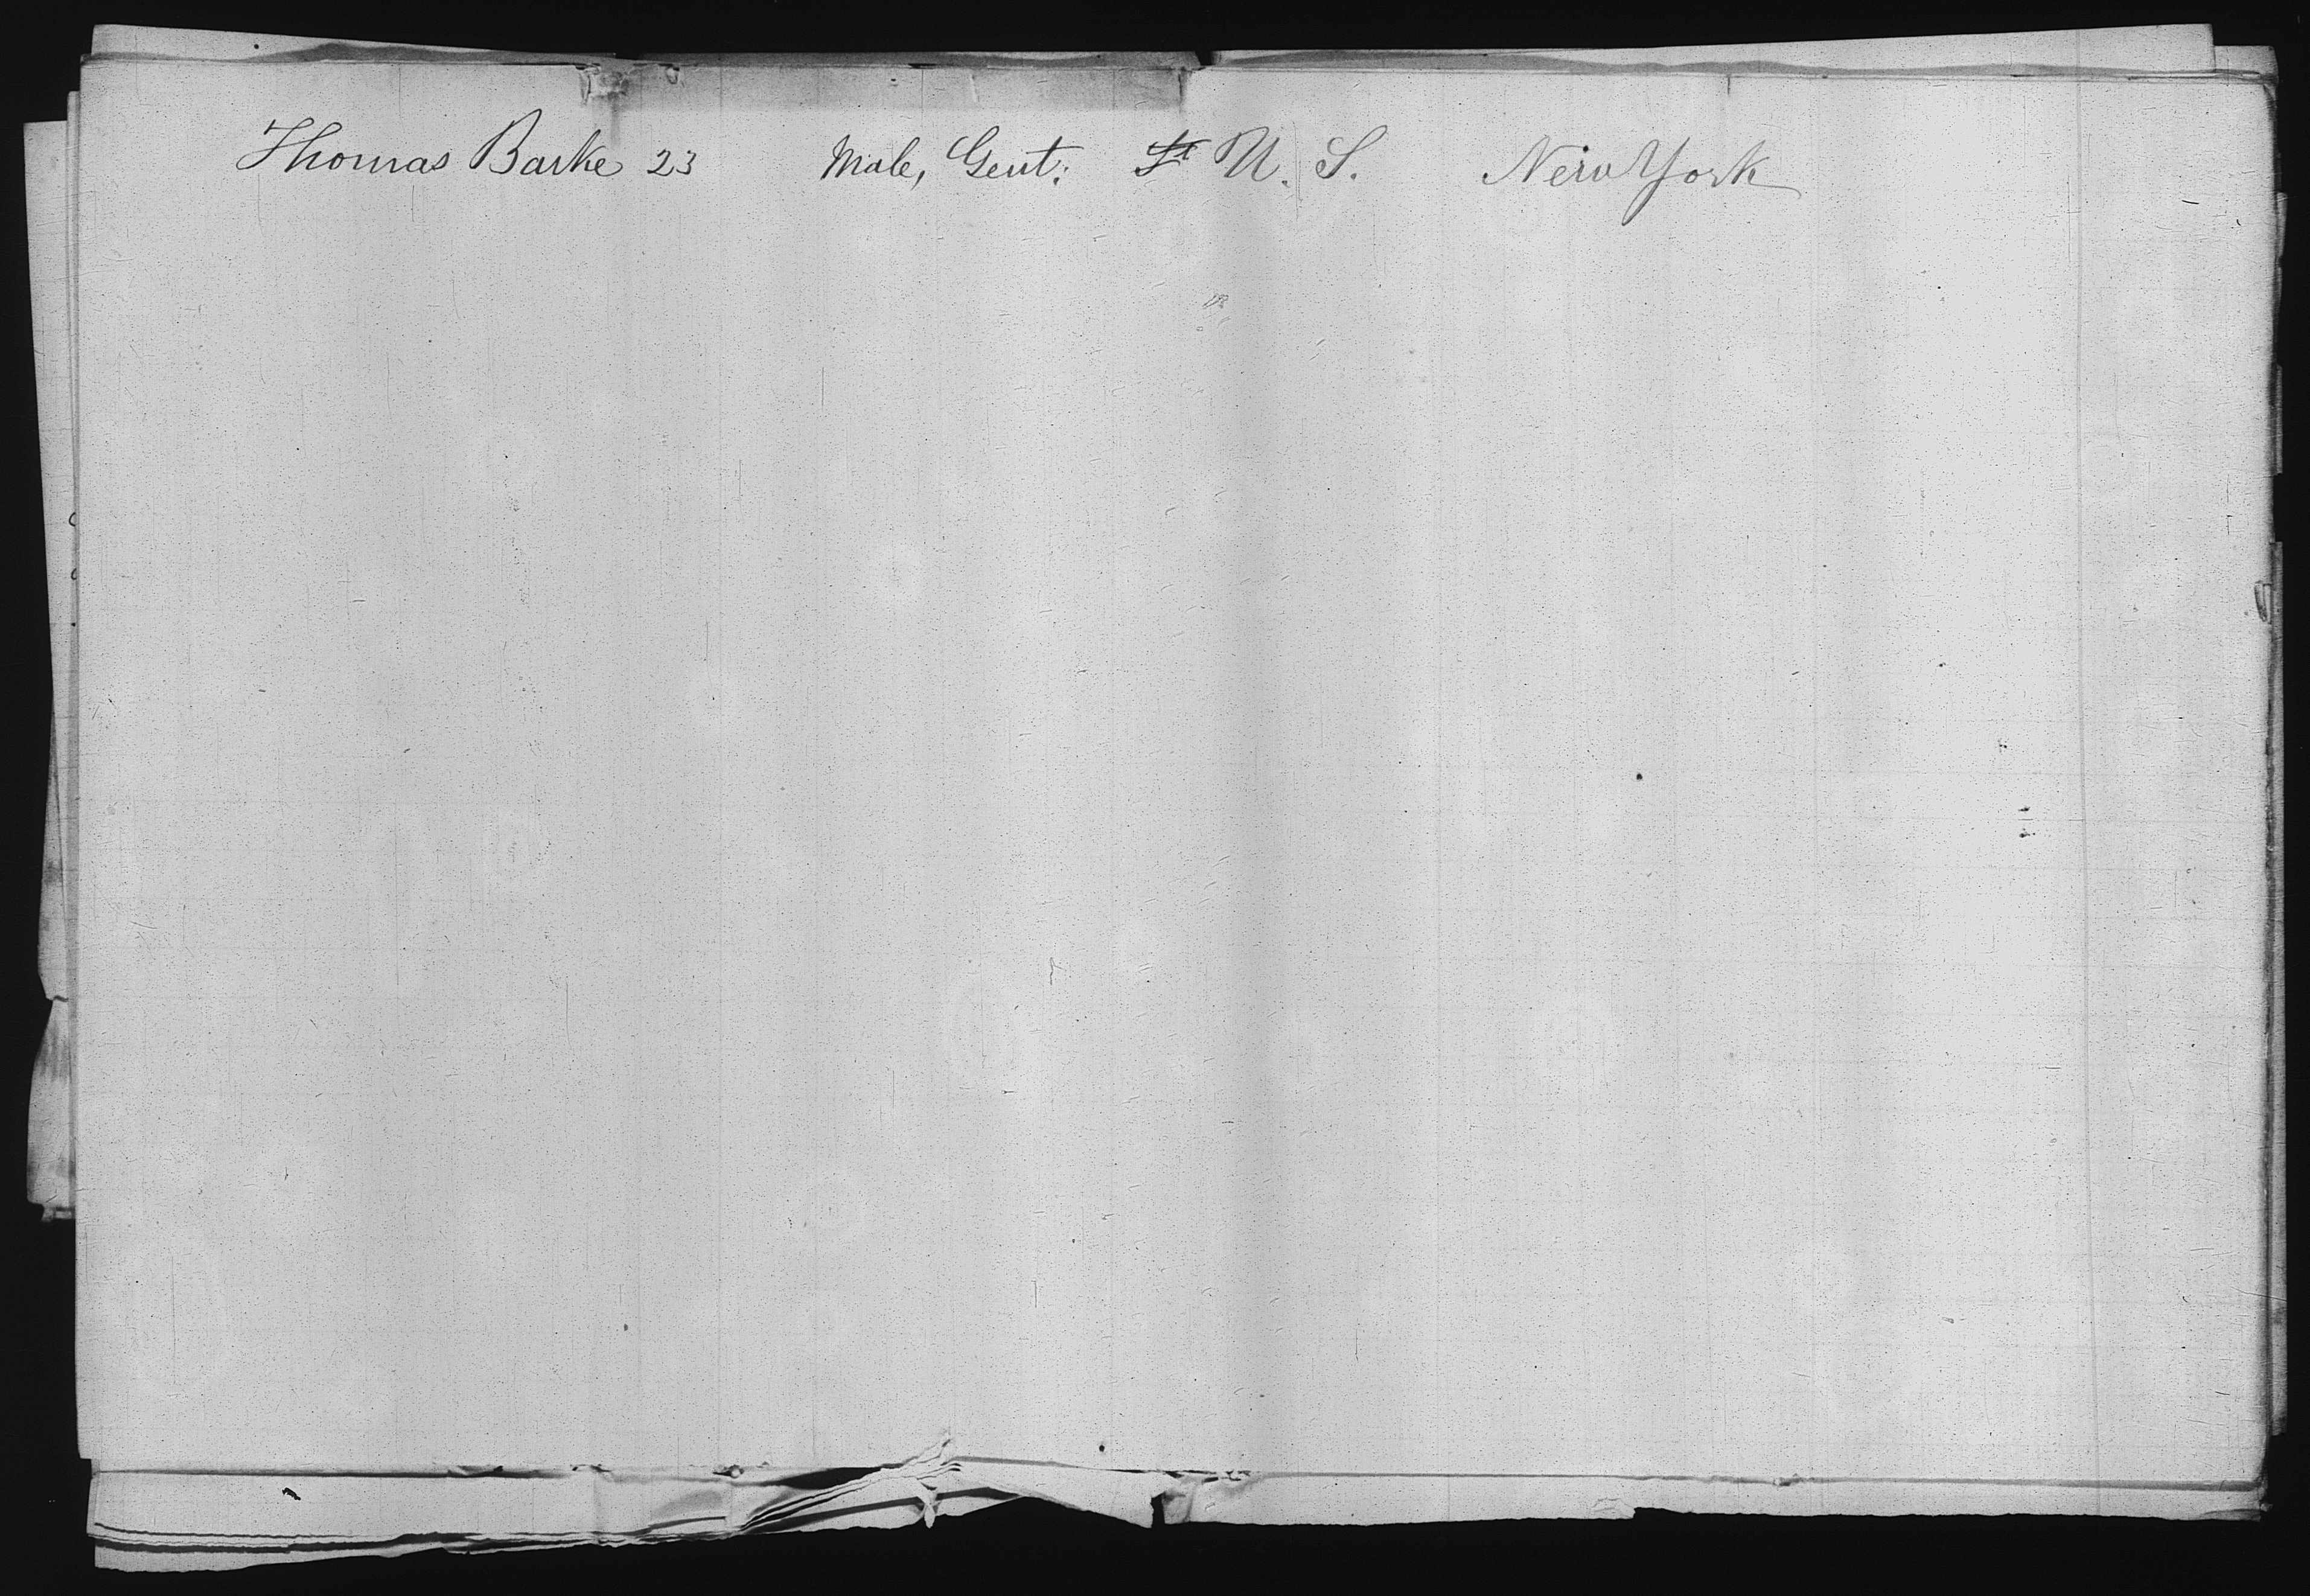 Thomas Barke 23 Male, Gent: U. S. New York